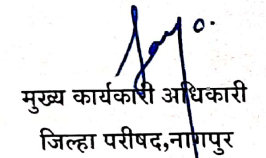 मुख्य कार्यकारी अधिकारी
जिल्हा परीषद,नागपुर